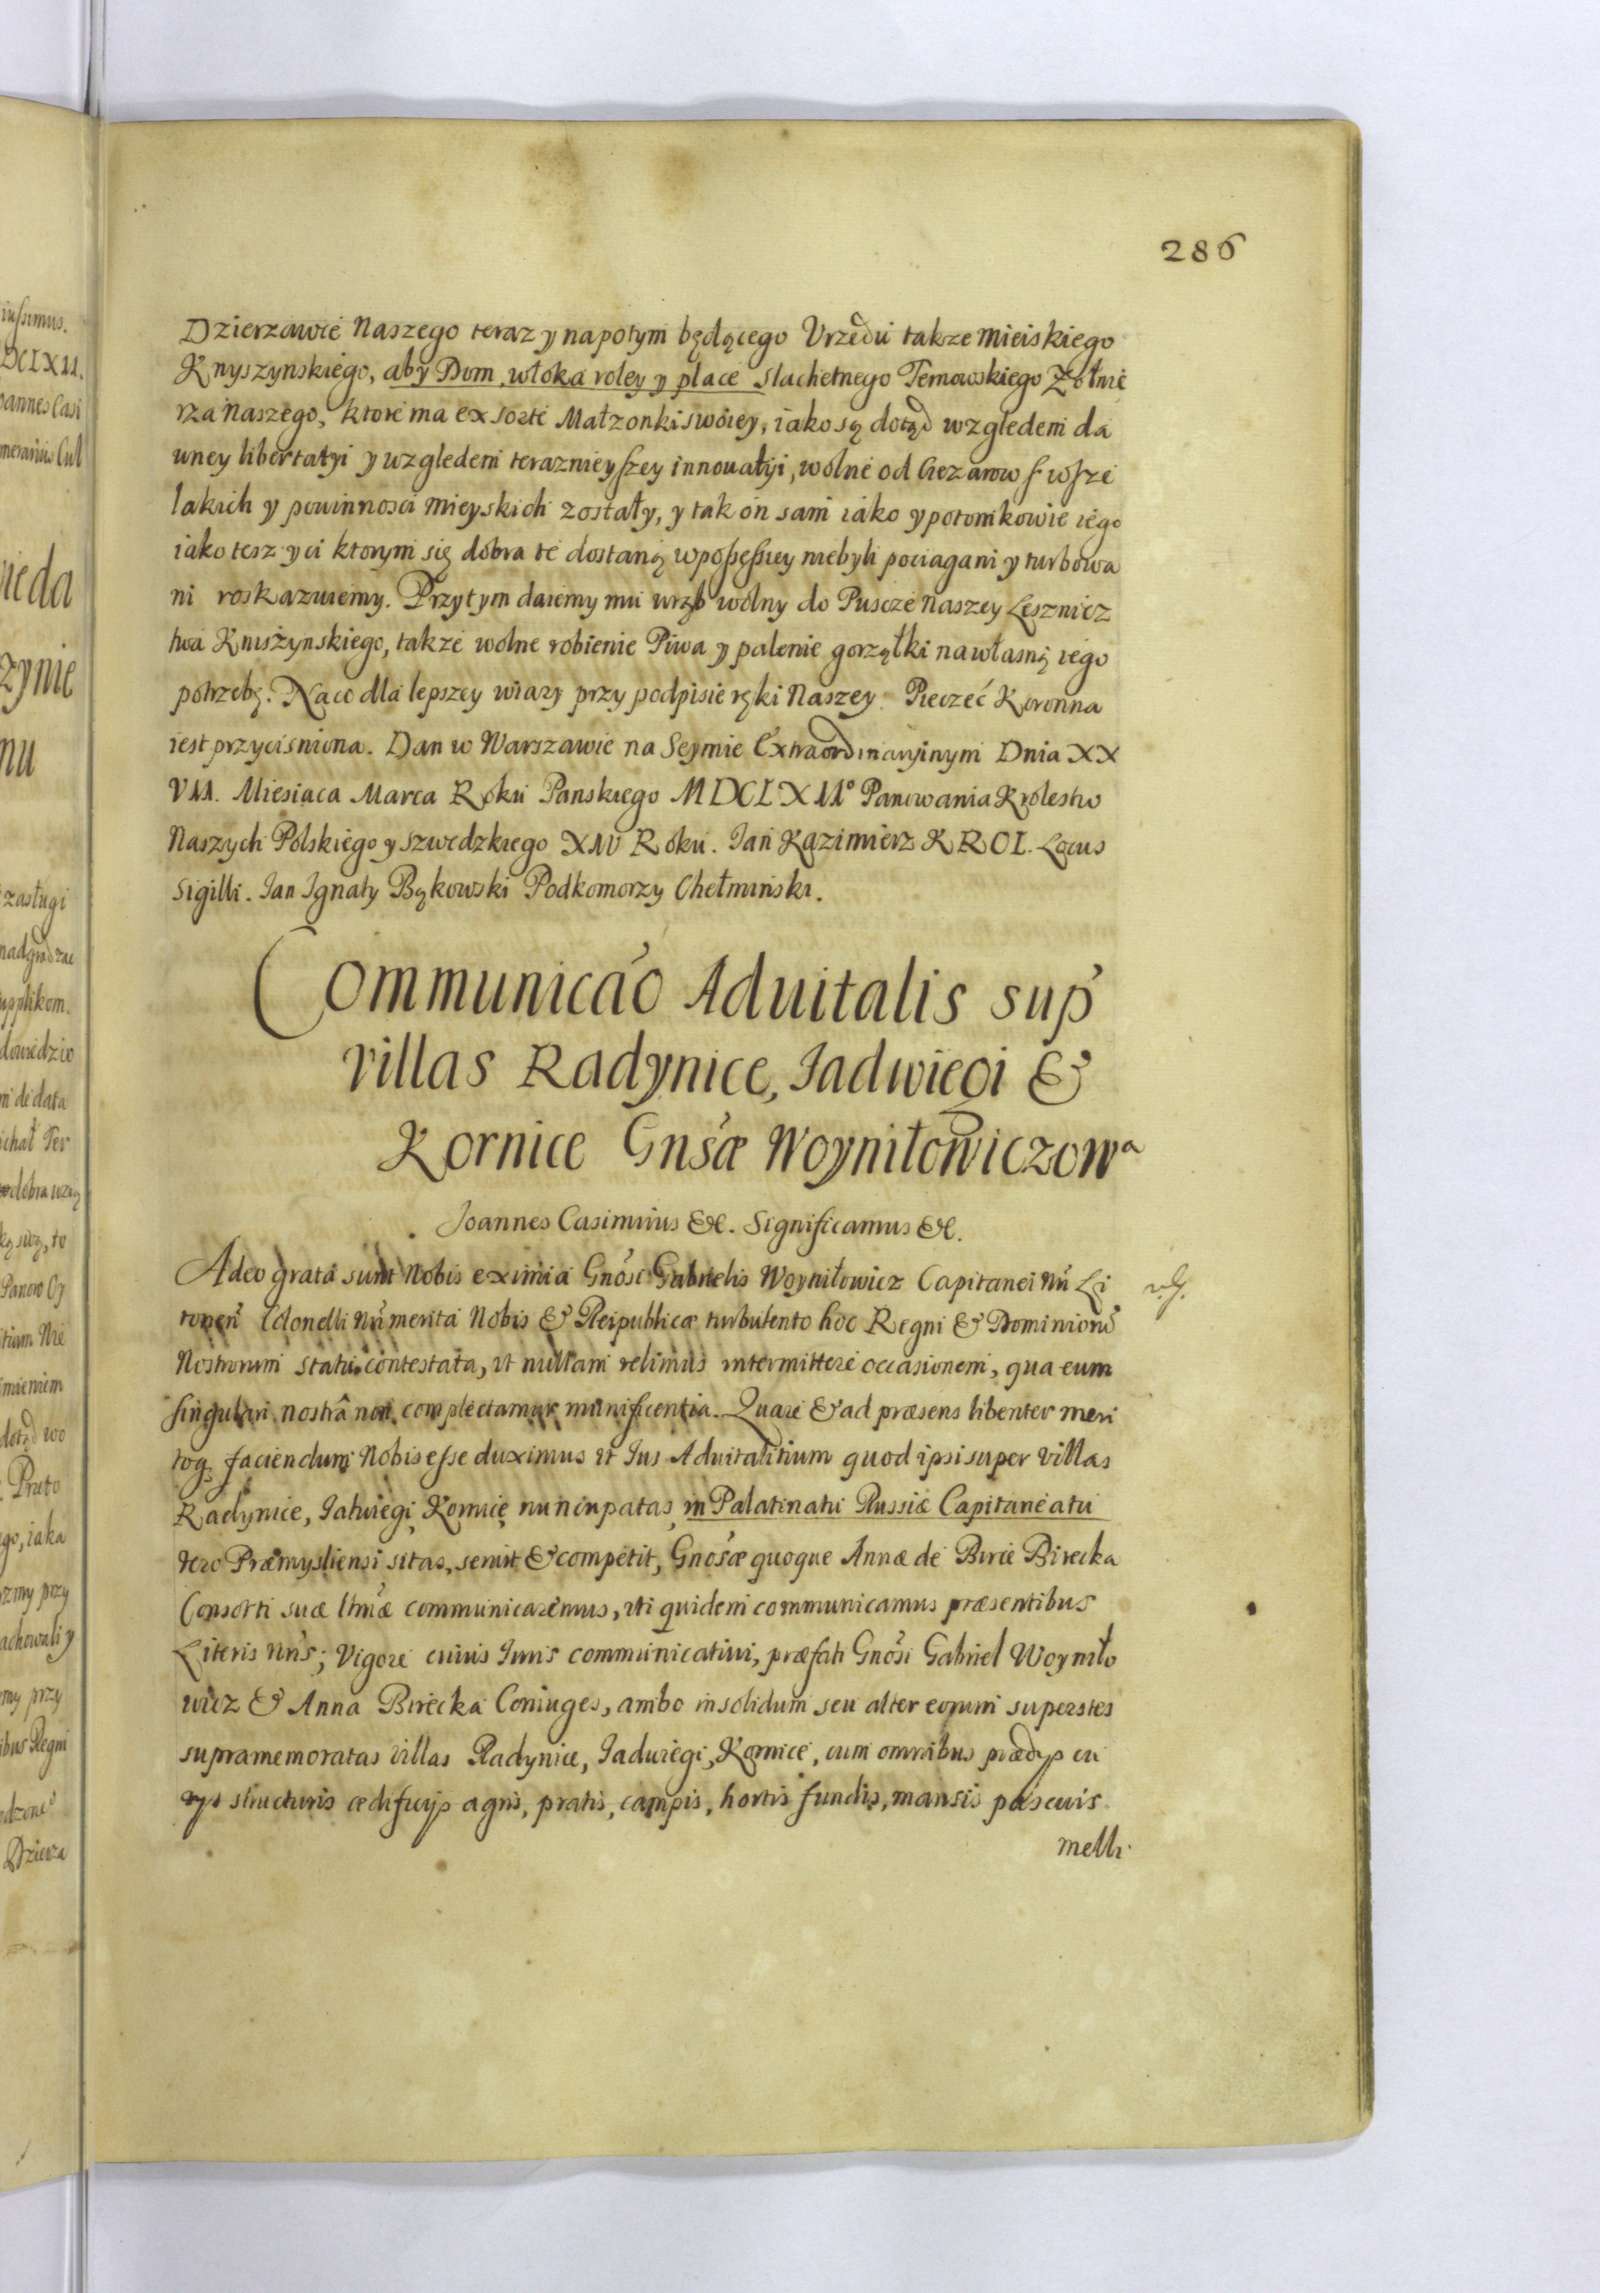 286
Dzierzawie Naszego teraz y napotym będącego Vrzędu takze Mieiskiego
Knyszynskiego, aby Dom, włoka roley y place Slachetnego Ternowskiego Zołnie
rza Naszego, ktore ma ex sorte Małzonki swoiey, iako są dotąd względem da
wney libertatyi y względem teraznieyszey innouatyi, wolne od Ciezarow wsze
lakich y powinnosci Mieyskich zostały, y tak on sam iako y potomkowie iego
iako tesz y ci ktorym się dobra te dostaną w possessiey niebyli pociagani y turbowa
ni roskazuiemy. Przytym daiemy mu wrąb wolny do Puscze Naszey Lesznicz
twa Knuszynskiego, takze wolne robienie Piwa y palenie gorzałki na własną iego
potrzebę. Na co dla lepszey wiary przy podpisie ręki Naszey Pieczęć Koronna
iest przycisniona. Dan w Warszawie na Seymie Extraordinaryinym Dnia XX
VII. Miesiąca Marca Roku Panskiego MDCLXII° Panowania Krolestw
Naszych Polskiego y Szwedzkiego XIV Roku. Jan Kazimierz KROL. Locus
Sigilli. Jan Jgnaty Bąkowski Podkomorzy Chełminski.
Communicão Aduitalis sup
villas Radynice, Jadwiegi &
Kornice Gnsæ Woyniłowiczowa
Joannes Casimirus &c. Significamus &c.
Adeo grata sunt Nobis eximia Gnosi Gabrielis Woyniłowicz Capitanei Nri Li
Colonelli Nri merita Nobis & Reipublicæ turbulento hoc Regni & Dominiorũ
Nostrorum statu contestata, ut nullam velimus intermittere occasionem, qua eum
singulari nostrâ non complectamur munificentia. Quare & ad præsens libenter meri
toq faciendum Nobis esse duximus ut Jus Aduitalitium quod ipsi super villas
Radynice, Jatwiegi, Kornice nuncupatas in Palatinatu Russiæ Capitaneatu
vero Præmysliensi sitas, seruit & competit, Gnosæ quoque Annæ de Bircie Birecka
Consorti suæ ltmæ communicaremus, uti quidem communicamus præsentibus
Literis Nris; Vigore cuius Juris communicatiui, præfati Gnosi Gabriel Woyniło
wicz & Anna Birecka Coniuges, ambo insolidum seu alter eorum superstes
supramemoratas villas Radynice, Jadwiegi, Kornice, cum omnibus prædijs cu
rys structuris ædificijs agris, pratis, campis, hortis fundis, mansis pascuis
melli